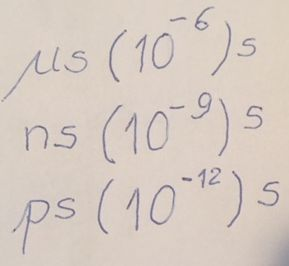 μs (10⁻⁶) s
ns (10⁻⁹) s
ps (10⁻¹²) s